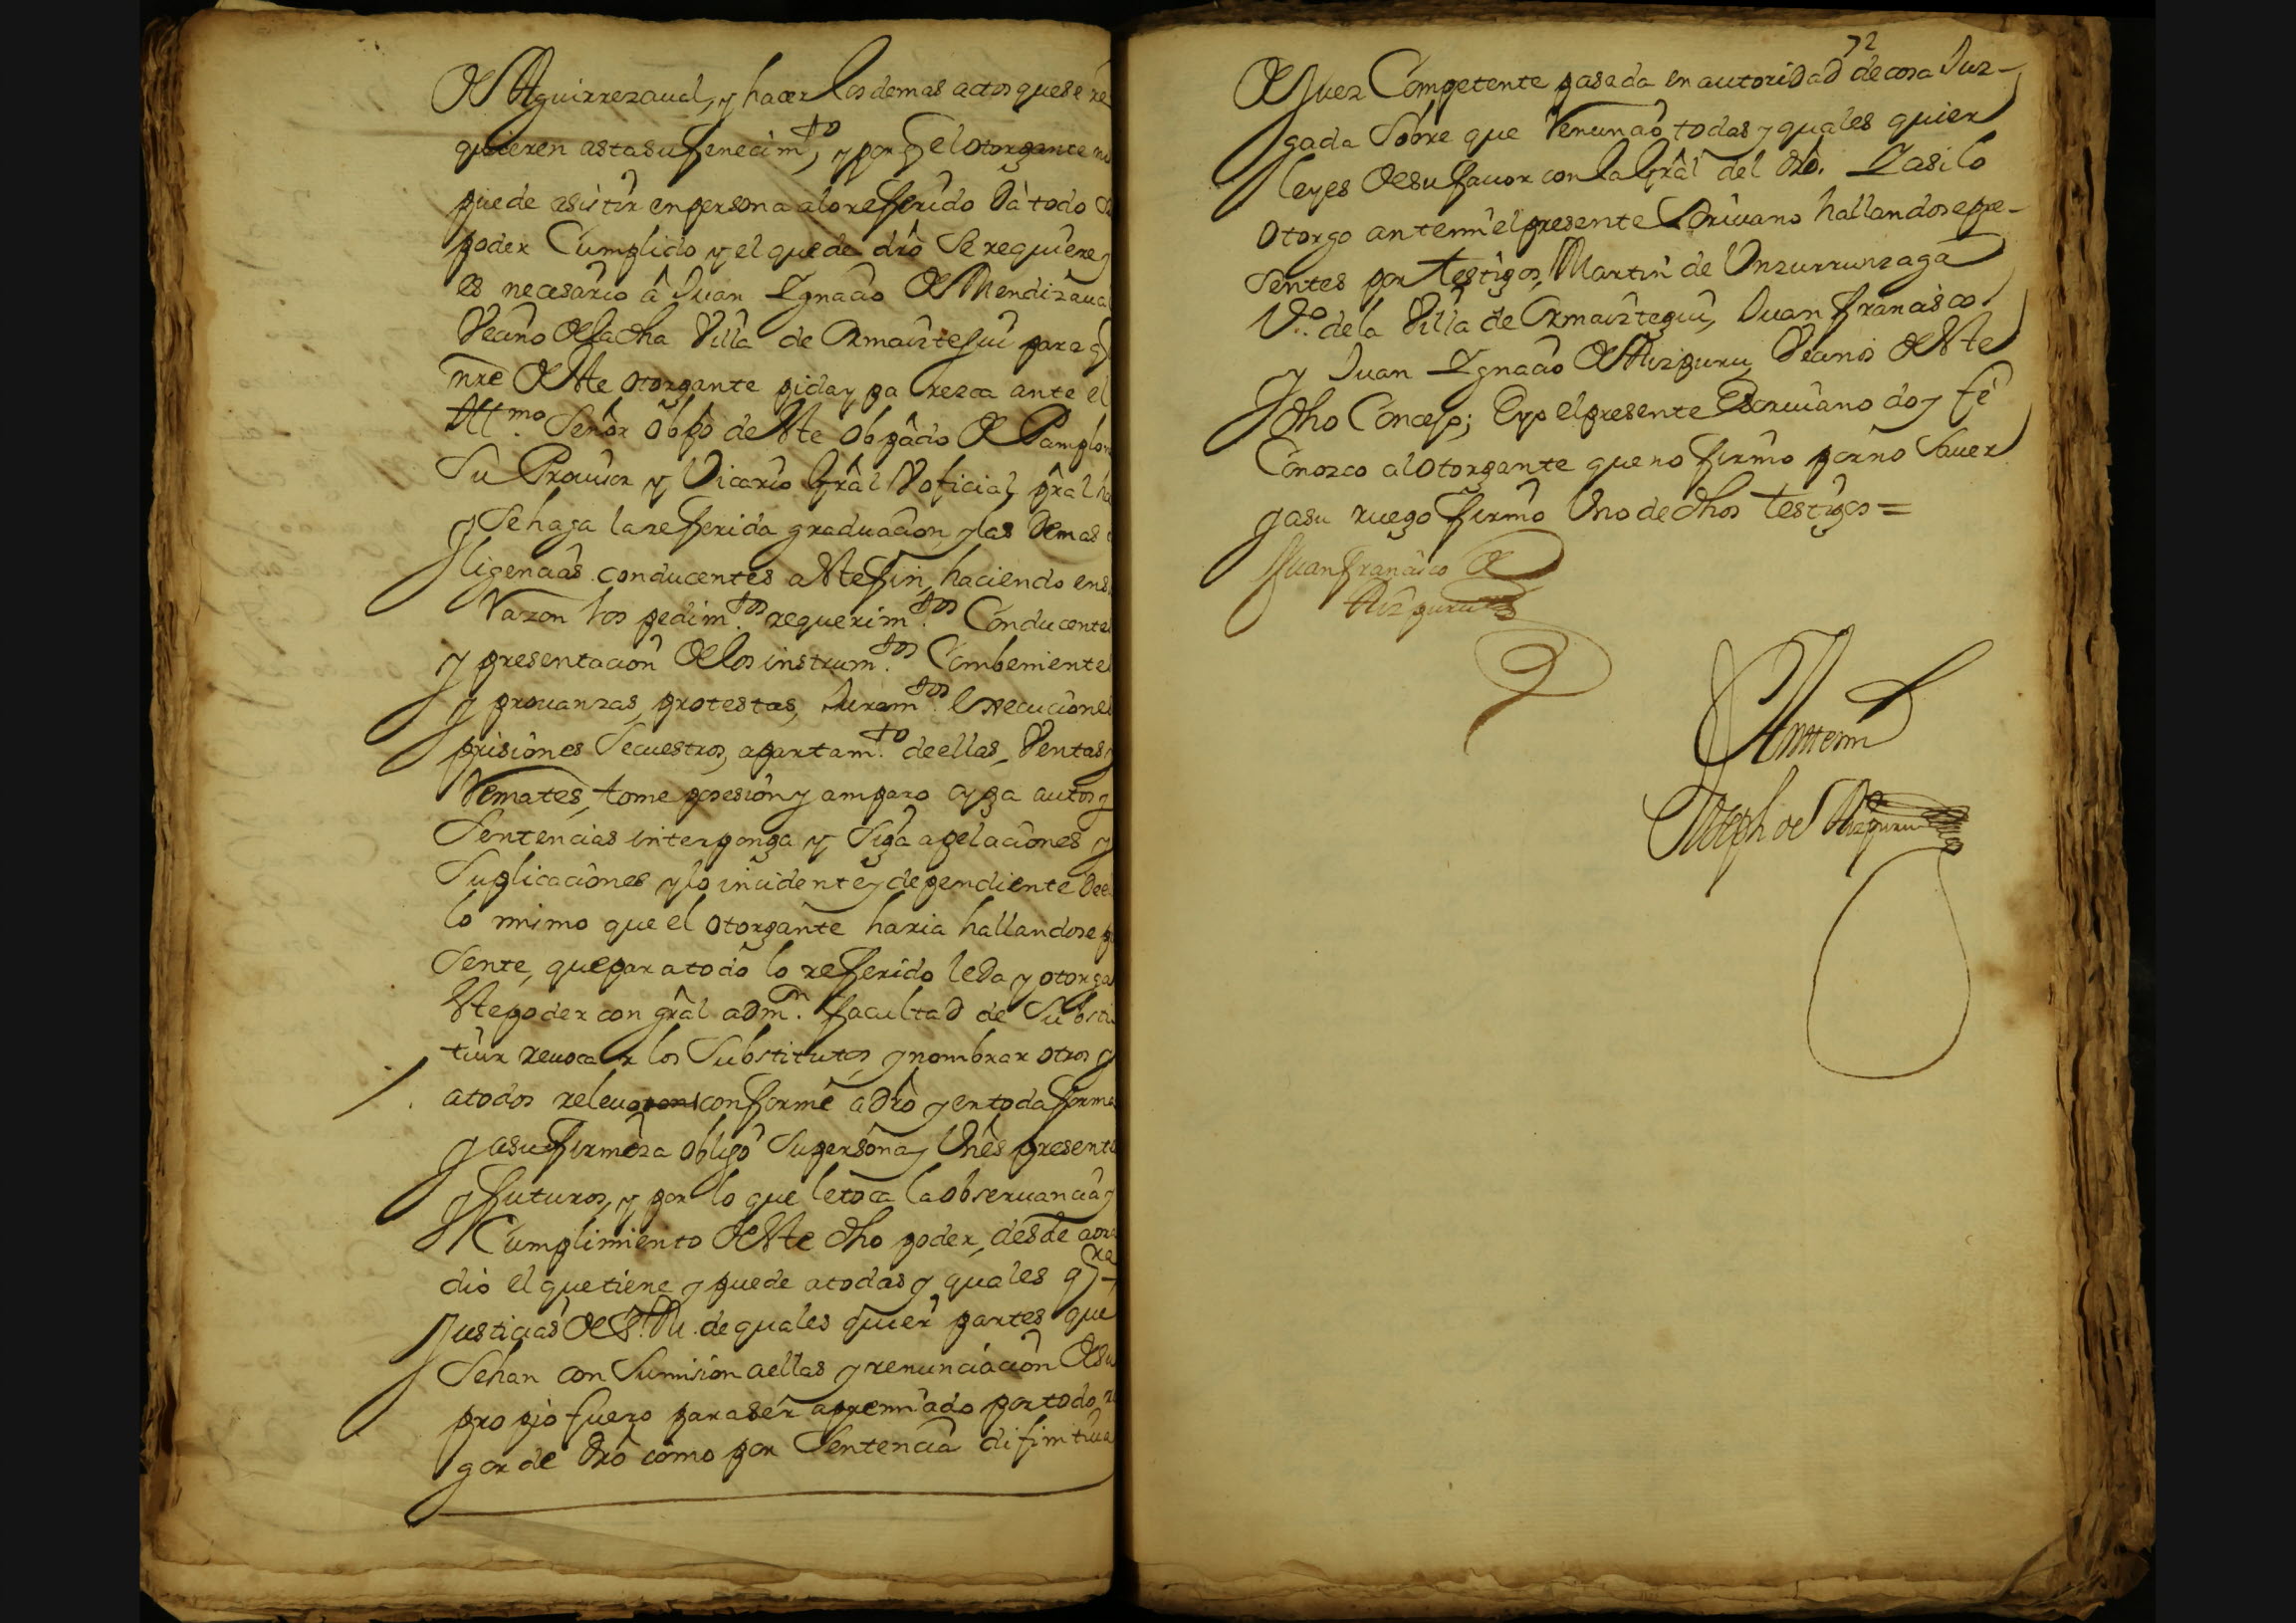 de Aguirrezaual, y hacer los demas actos que se re
quieren asta su fenecim.to, y por q el otorgante no
puede asistir en persona alo refferido Dà todo su
poder Cumplido y el que de dró Se requiere y
es necesario â Juan Ygnacio de Mendizaual
Vecino de la dha Villa de Ormaiztegui para q
nrê de este otorgante pida y pa rezca ante el
Ill.mo Señor Obpô de este Obpâdo de Pamplon
Su Prouisor y Vicario Grâl V oficial prâl ha
q Se haga la refferida graduacion y las Demas
ligencias conducentes a este fin, haciendo en s
Razon los pedim.tos requerim.tos Conducentes
y presentacion de los instrum.tos Combenientes
y prouanzas, protestas, Juram.tos Execuciones
prisiones Secuestros, apartam.to de ellas, Ventas y
Remates, tome posesion y amparo oyga autos y
Sentencias interponga y Siga apelaciones y
Suplicaciones y lo incidente y dependiente Dee
lo mimo que el otorgante haria hallandose p
Sente, que para todo lo refferido le Da y otorga
este poder con grâl adm.n facultad de Substi
tuir reuoca r los Substitutos, y nombrar otros y
a todos releuo conforme a Drô y en toda forma
y a su firmeza obligó Su persona y Vnês presentes
y futuros, y por lo que le toca la obseruancia y
Cumplimiento de este dho poder, desde aora
dio el que tiene y puede a todas y quales q.re
Justicias de S. M. de quales quier partes que
Sehan con Sumision aellas y renunciacion de su
propio fuero para ser apremiado por todo ri
gor de Drô como por Sentencia difinitiua
72
de Juez Competente pasada en autoridad de cosa Juz-
gada Sobre que Renunció todas y quales quier
leyes de su fauor con la Grâl del drô. Y asi lo
otorgo antemi el presente Escriuano hallandose pre-
sentes por testigos, Martin de Vnzurrunzaga
V.o de la Villa de Ormaiztegui, Juan francisco
y Juan Ygnacio de Aizpuru Vecinos de este
dho Concejo; E yo el presente Escriuano doy fé
Conozco al otorgante que no firmo por no Sauer
y a su ruego firmo Vno de dhos testigos =
Juan francisco de
Aizpuru
Antemi
Joseph de Aizpuru